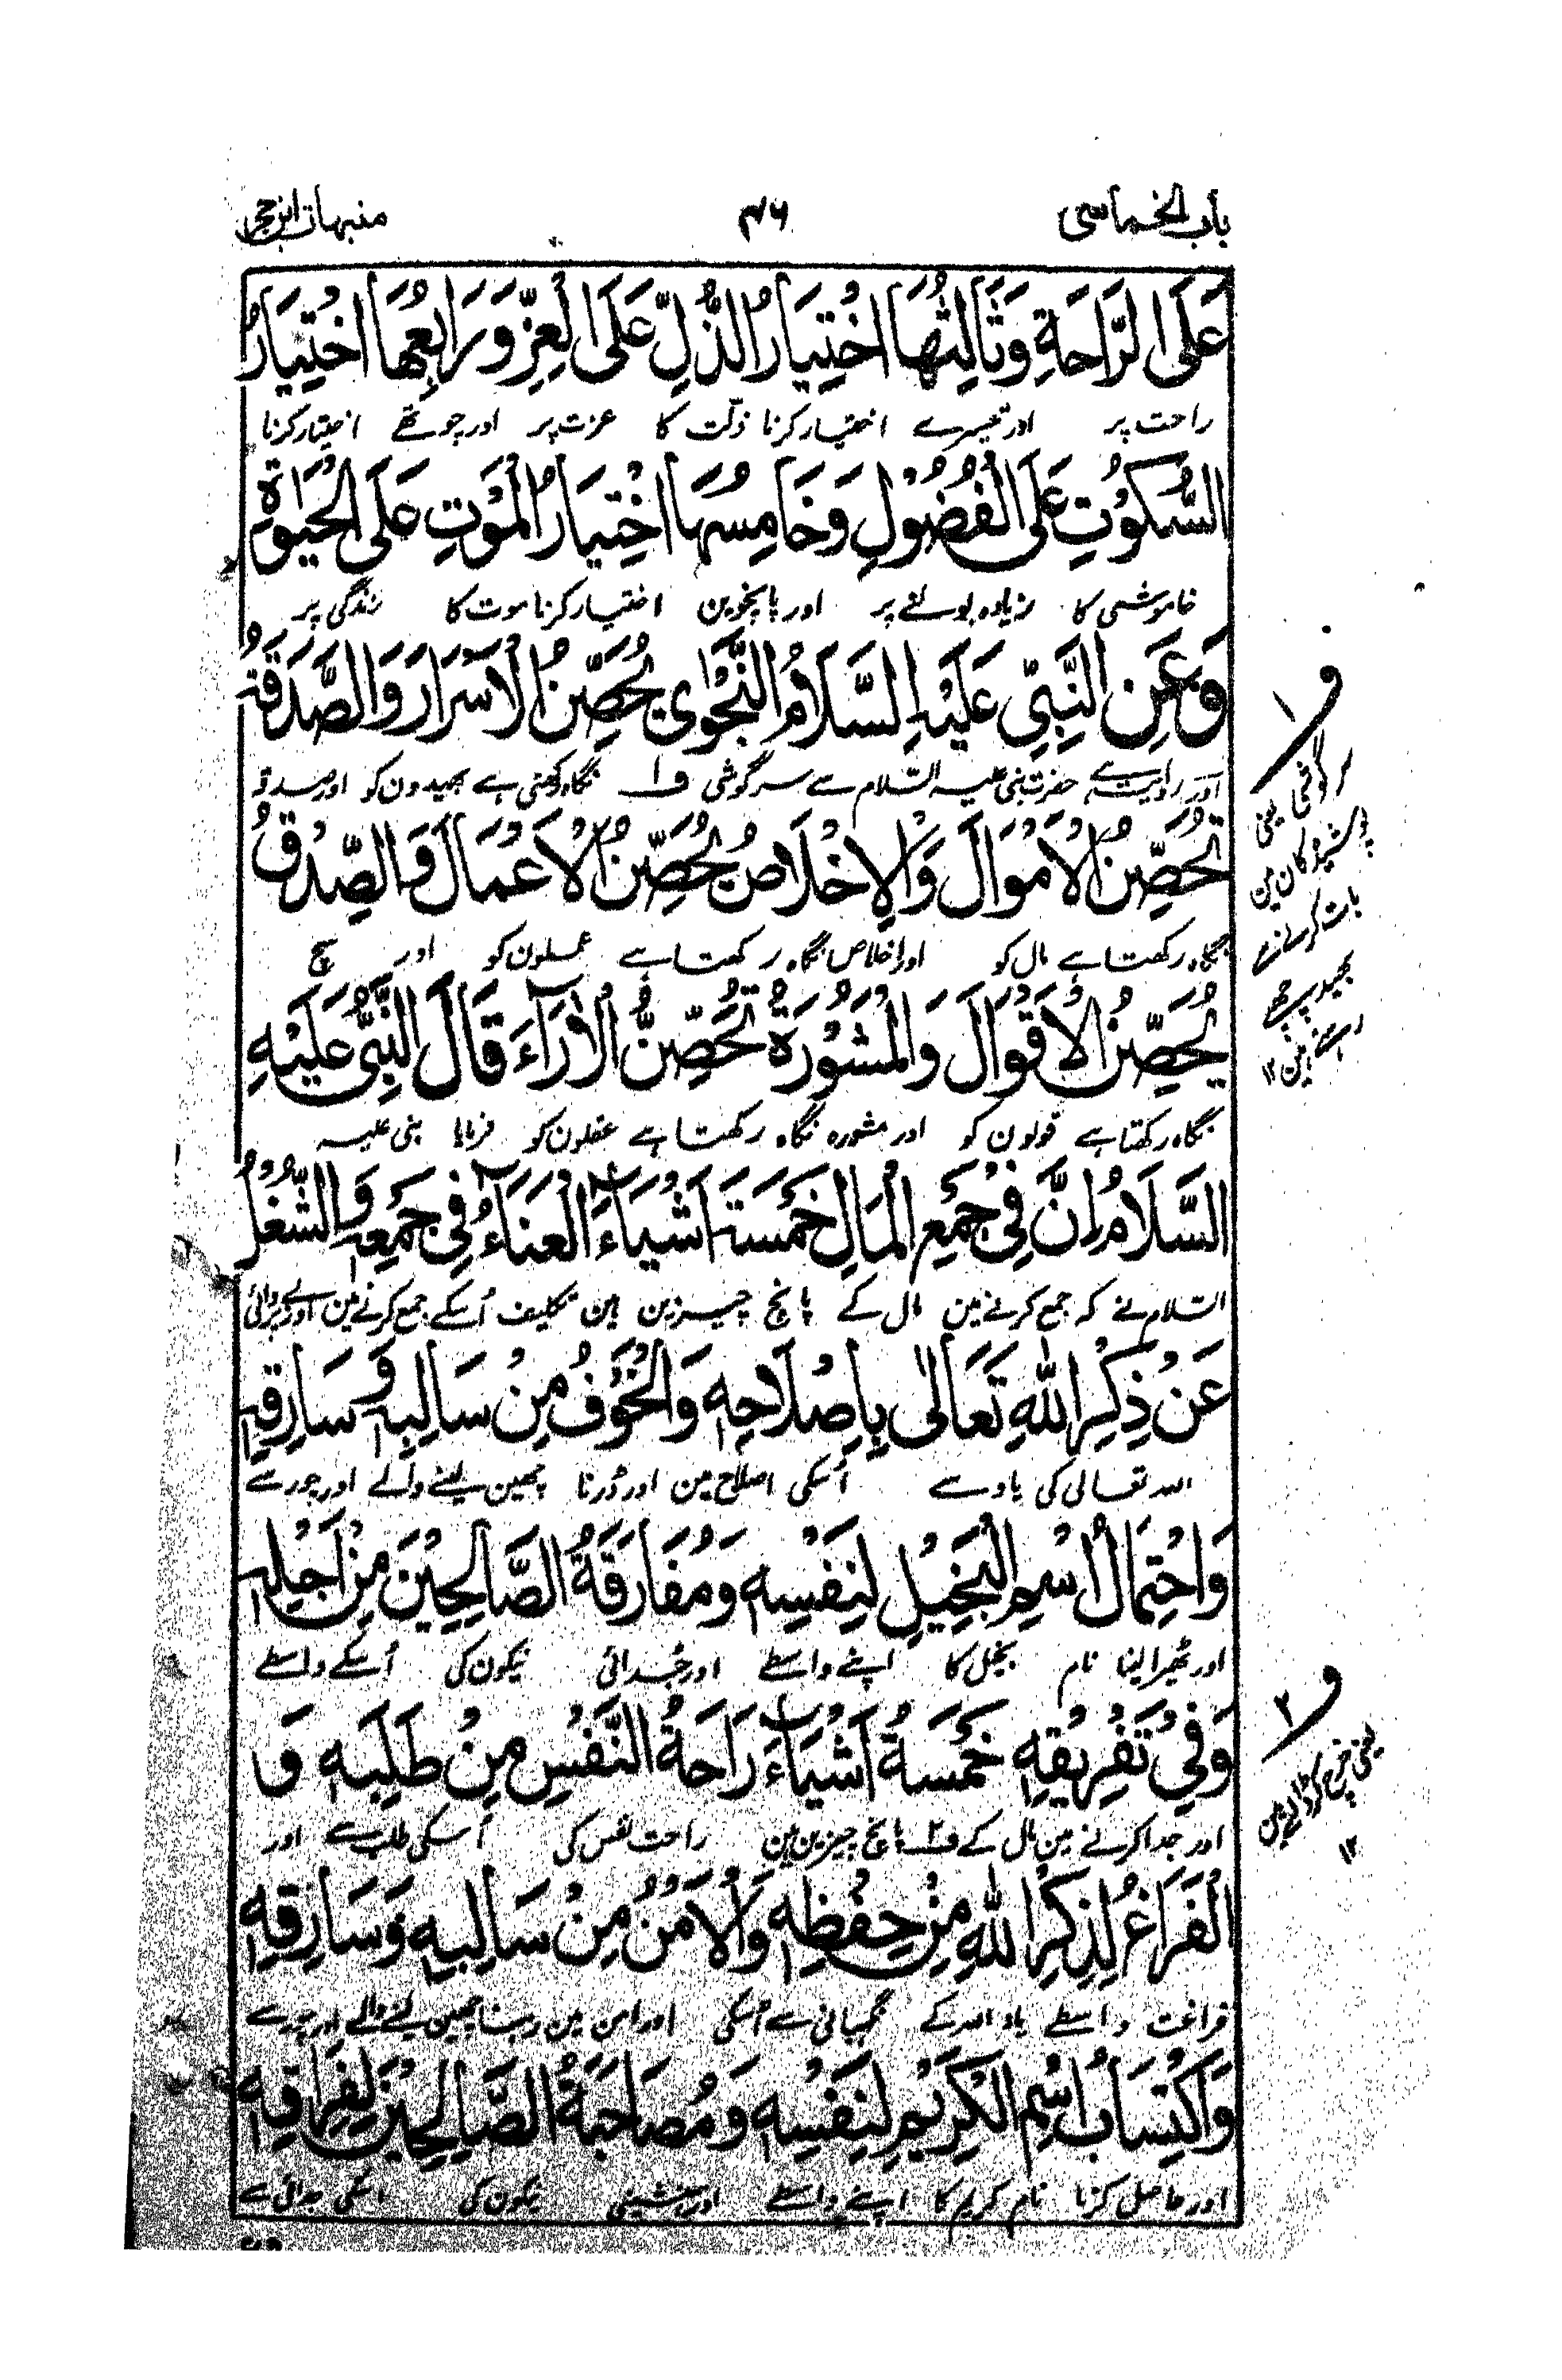 باب الخماسی ۴۶ منبہات ابن حجر
عَلَى الرَّاحَةِ وَثَالِثُهَا اخْتِيَارُ الذُّلِّ عَلَى الْعِزِّ وَرَابِعُهَا اخْتِيَارُ
راحت پر اور تیسرے اختیار کرنا ذلّت کا عزت پر اور چوتھے اختیار کرنا
السُّكُوْتِ عَلَى الْفُضُوْلِ وَخَامِسُهَا اخْتِيَارُ الْمَوْتِ عَلَى الْحَيٰوةِ
خاموشی کا زیادہ بولنے پر اور پانچوین اختیار کرنا موت کا زندگی پر
وَعَنِ النَّبِيِّ عَلَيْهِ السَّلَامُ النَّجْوٰى يُحَصِّنُ الْاَسْرَارَ وَالصَّدَقَةُ
اور روایت ہے حضرت نبی علیہ السّلام سے سرگوشی ف۱ نگاہ رکھتی ہے بھیدون کو اور صدقہ
تُحَصِّنُ الْاَمْوَالَ وَالْاِخْلَاصُ يُحَصِّنُ الْاَعْمَالَ وَالصِّدْقُ
نگاہ رکھتا ہے مال کو اور اخلاص نگاہ رکھتا ہے عملون کو اور سچ
يُحَصِّنُ الْاَقْوَالَ وَالْمَشْوَرَةُ تُحَصِّنُ الْاٰرَاءَ قَالَ النَّبِيُّ عَلَيْهِ
نگاہ رکھتا ہے قولون کو اور مشورہ نگاہ رکھتا ہے عقلون کو فرمایا نبی علیہ
السَّلَامُ اِنَّ فِيْ جَمْعِ الْمَالِ خَمْسَةَ اَشْيَاءَ الْعَنَاءُ فِيْ جَمْعِهٖ وَالشُّغْلُ
السّلام نے کہ جمع کرنے مین مال کے پانچ چیزین ہین تکلیف اُسکے جمع کرنے مین اور
عَنْ ذِكْرِ اللهِ تَعَالٰى بِاِصْلَاحِهٖ وَالْخَوْفُ مِنْ سَالِبِهٖ وَسَارِقِهٖ
اللہ تعالی کی یاد سے اُسکی اصلاح مین اور ڈرنا چھین لینے والے اور چور سے
وَاحْتِمَالُ اسْمِ الْبَخِيْلِ لِنَفْسِهٖ وَمُفَارَقَةُ الصَّالِحِيْنَ مِنْ اَجْلِهٖ
اور ٹھیرا لینا نام بخیل کا اپنے واسطے اور جُدائی نیکون کی اُسکے واسطے
وَفِيْ تَفْرِيْقِهٖ خَمْسَةُ اَشْيَاءَ رَاحَةُ النَّفْسِ مِنْ طَلَبِهٖ وَ
اور جدا کرنے مین مال کے ف۲ پانچ چیزین ہین راحت نفس کی اُسکی طلب سے اور
الْفَرَاغُ لِذِكْرِ اللهِ مِنْ حِفْظِهٖ وَالْاَمْنُ مِنْ سَالِبِهٖ وَسَارِقِهٖ
فراغت واسطے یاد اللہ کے نگہبانی سے اُسکی اور امن مین رہنا چھین لینے والے اور چور سے
وَاكْتِسَابُ اسْمِ الْكَرِيْمِ لِنَفْسِهٖ وَمُصَاحَبَةُ الصَّالِحِيْنَ لِفِرَاقِهٖ
اور حاصل کرنا نام کریم کا اپنے واسطے اور ہمنشینی نیکون کی اُسکی جدائی سے
ف۱
سرگوشی یعنی
پوشیدہ کان مین
بات کرنے سے
بھید
رہتے ہین ۱۲
ف۲
یعنی خرچ کر ڈالنے مین
۱۲